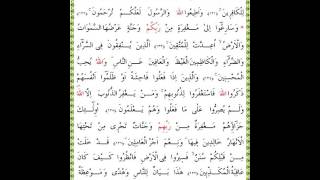 لِلْكَافِرِينَ ﴿١٣١﴾ وَأَطِيعُوا اللَّهَ وَالرَّسُولَ لَعَلَّكُمْ تُرْحَمُونَ ﴿١٣٢﴾
وَسَارِعُوا إِلَى مَغْفِرَةٍ مِنْ رَبِّكُمْ وَجَنَّةٍ عَرْضُهَا السَّمَوَاتُ
وَالْأَرْضُ أُعِدَّتْ لِلْمُتَّقِينَ ﴿١٣٣﴾ الَّذِينَ يُنْفِقُونَ فِي السَّرَّاءِ
وَالضَّرَّاءِ وَالْكَاظِمِينَ الْغَيْظَ وَالْعَافِينَ عَنِ النَّاسِ وَاللَّهُ يُحِبُّ
الْمُحْسِنِينَ ﴿١٣٤﴾ وَالَّذِينَ إِذَا فَعَلُوا فَاحِشَةً أَوْ ظَلَمُوا أَنْفُسَهُمْ
ذَكَرُوا اللَّهَ فَاسْتَغْفَرُوا لِذُنُوبِهِمْ وَمَنْ يَغْفِرُ الذُّنُوبَ إِلَّا اللَّهُ
وَلَمْ يُصِرُّوا عَلَى مَا فَعَلُوا وَهُمْ يَعْلَمُونَ ﴿١٣٥﴾ أُولَئِكَ
جَزَاؤُهُمْ مَغْفِرَةٌ مِنْ رَبِّهِمْ وَجَنَّاتٌ تَجْرِي مِنْ تَحْتِهَا
الْأَنْهَارُ خَالِدِينَ فِيهَا وَنِعْمَ أَجْرُ الْعَامِلِينَ ﴿١٣٦﴾ قَدْ خَلَتْ
مِنْ قَبْلِكُمْ سُنَنٌ فَسِيرُوا فِي الْأَرْضِ فَانْظُرُوا كَيْفَ كَانَ
عَاقِبَةُ الْمُكَذِّبِينَ ﴿١٣٧﴾ هَذَا بَيَانٌ لِلنَّاسِ وَهُدًى وَمَوْعِظَةٌ